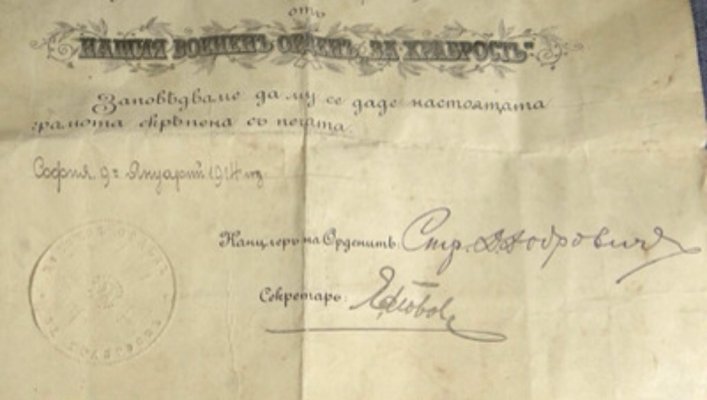 отъ
НАШИЯ ВОЕНЕНЪ ОРДЕНЪ „ЗА ХРАБРОСТЬ“.
Заповѣдваме да му се даде настоящата
грамота скрѣпена съ печата.
София, 9й Януарий 1914 год.
Канцлеръ на Орденитѣ: Стр. Добровичъ
Секретарь: